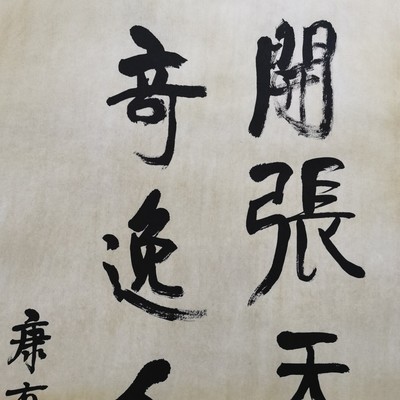 開張天
奇逸人
康有